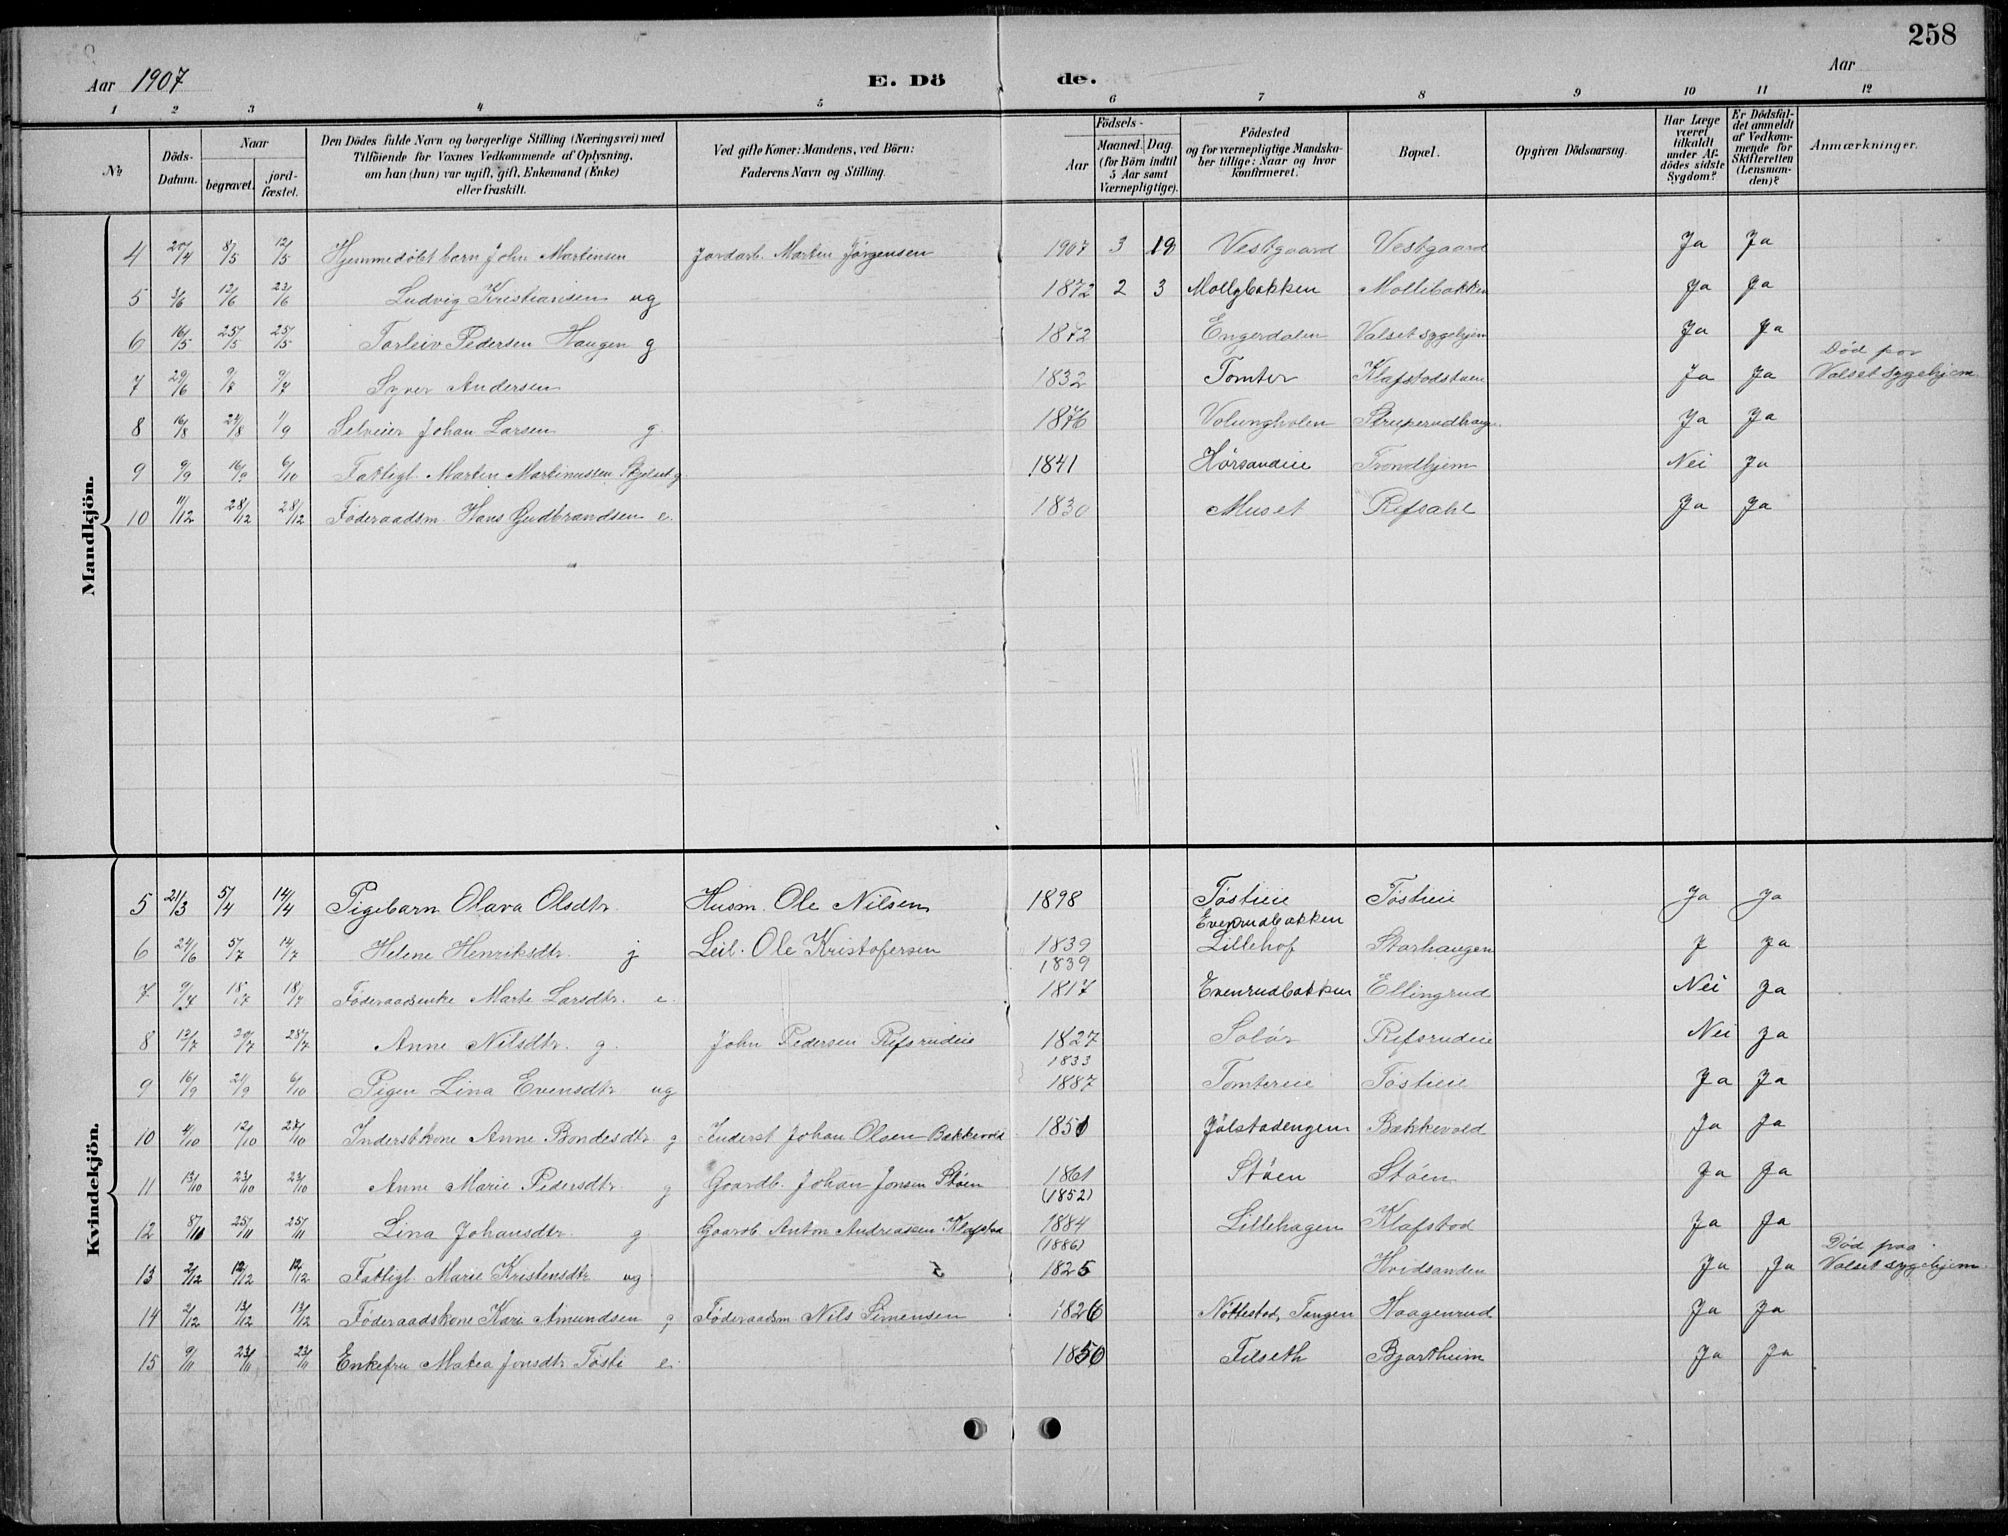 258
Aar 1907 E. Dö de. Aar
1 2 3 4 5 6 7 8 9 10 11 12
No
Döds-Datum.
Naar
begravet.
jord-fæstet.
Den Dödes fulde Navn og borgerlige Stilling (Næringsvei) med
Tilföiende for Voxnes Vedkommende af Oplysning,
om han (hun) var ugift, gift, Enkemand (Enke)
eller fraskilt.
Ved gifte Koner: Mandens, ved Börn:
Faderens Navn og Stilling.
Födsels-
Aar
Maaned. Dag.
(for Börn indtil
5 Aar samt
Værnepligtige).
Födested
og for værnepligtige Mandska-
ber tillige: Naar og hvor
konfirmeret.
Bopæl.
Opgiven Dödsaarsag.
Har Læge
været
tilkaldt
under Af-
dödes sidste
Sygdom?
Er Dödsfal-
det anmeldt
af Vedkom-
mende for
Skifteretten
(Lensman-
den)?
Anmærkninger.
Mandkjön.
4 20/4 8/5 12/5 Hjemmedøbt barn John Martinsen Jordarb. Martin Jørgensen 1907 3 19 Vestgaard Vestgaard Ja Ja
5 3/6 12/6 23/6 Ludvig Kristiansen ug 1872 2 3 Mollybakken Mollebakken Ja Ja
6 16/5 25/5 25/5 Torleiv Pedersen Haugen g 1872 Engerdalen Valset sygehjem Ja Ja
7 29/6 9/7 Syver Andersen 1832 Tomter Klafstadstuen Ja Ja Død paa
Valset sygehjem
8 16/8 24/8 1/9 Selveier Johan Larsen g. 1876 Volungholen Ja Ja
9 9/9 16/9 6/10 Fattigl. Martin Martinussen g. 1841 Hørsandeie Trondhjem Nei Ja
10 11/12 28/12 28/12 Føderaadsm. Hans Gudbrandsen e. 1830 Muset Refsahl Ja Ja
Kvindekjön.
5 21/3 5/4 14/4 Pigebarn Olava Olsdtr. Husm. Ole Nilsen 1898 Tøstieie Tøstieie Ja Ja
Evenrudbakken
6 24/6 5/7 14/7 Helene Henriksdtr. g Leil. Ole Kristofersen 1839 Lillehof Storhaugen J Ja
1839
7 9/7 18/7 18/7 Føderaadsenke Marte Larsdtr. e. 1817 Evenrudbakken Ellingrud Nei Ja
8 12/7 20/7 28/7 Anne Nilsdtr. g. John Pedersen Refsrudeie 1827 Solør Refsrudeie Nei Ja
1833
9 16/9 21/9 6/10 Pigen Lina Evensdtr. ug 1887 Tomtereie Tøstieie Ja Ja
10 4/10 12/10 27/10 Inderstkone Anne Bondesdtr g Inderst Johan Olsen Bækkevold 1851 Jølstadengen Bækkevold Ja Ja
11 13/10 23/10 23/10 Anne Marie Pedersdtr. g Gaardb. Johan Jonsen Støen 1861 Støen Støen Ja Ja
(1852)
12 8/10 25/11 25/11 Lina Johansdtr. g Gaardb. Anton Andreassen Klafstad 1884 Lillehagen Klafstad Ja Ja
(1886)
13 2/12 12/12 12/12 Fattigl. Marie Kristensdtr. ug 1825 Hvidsanden Ja Ja Død paa
Valset sygehjem
14 2/12 13/12 13/12 Føderaadskone Kari Amundsen g Føderaadsm Nils Simensen 1826 Nøttestad, Tangen Haagenrud Ja Ja
15 9/11 23/11 23/11 Enkefru Matea Jonsdtr. Tøsti e. 1850 Filseth Bjartheim Ja Ja